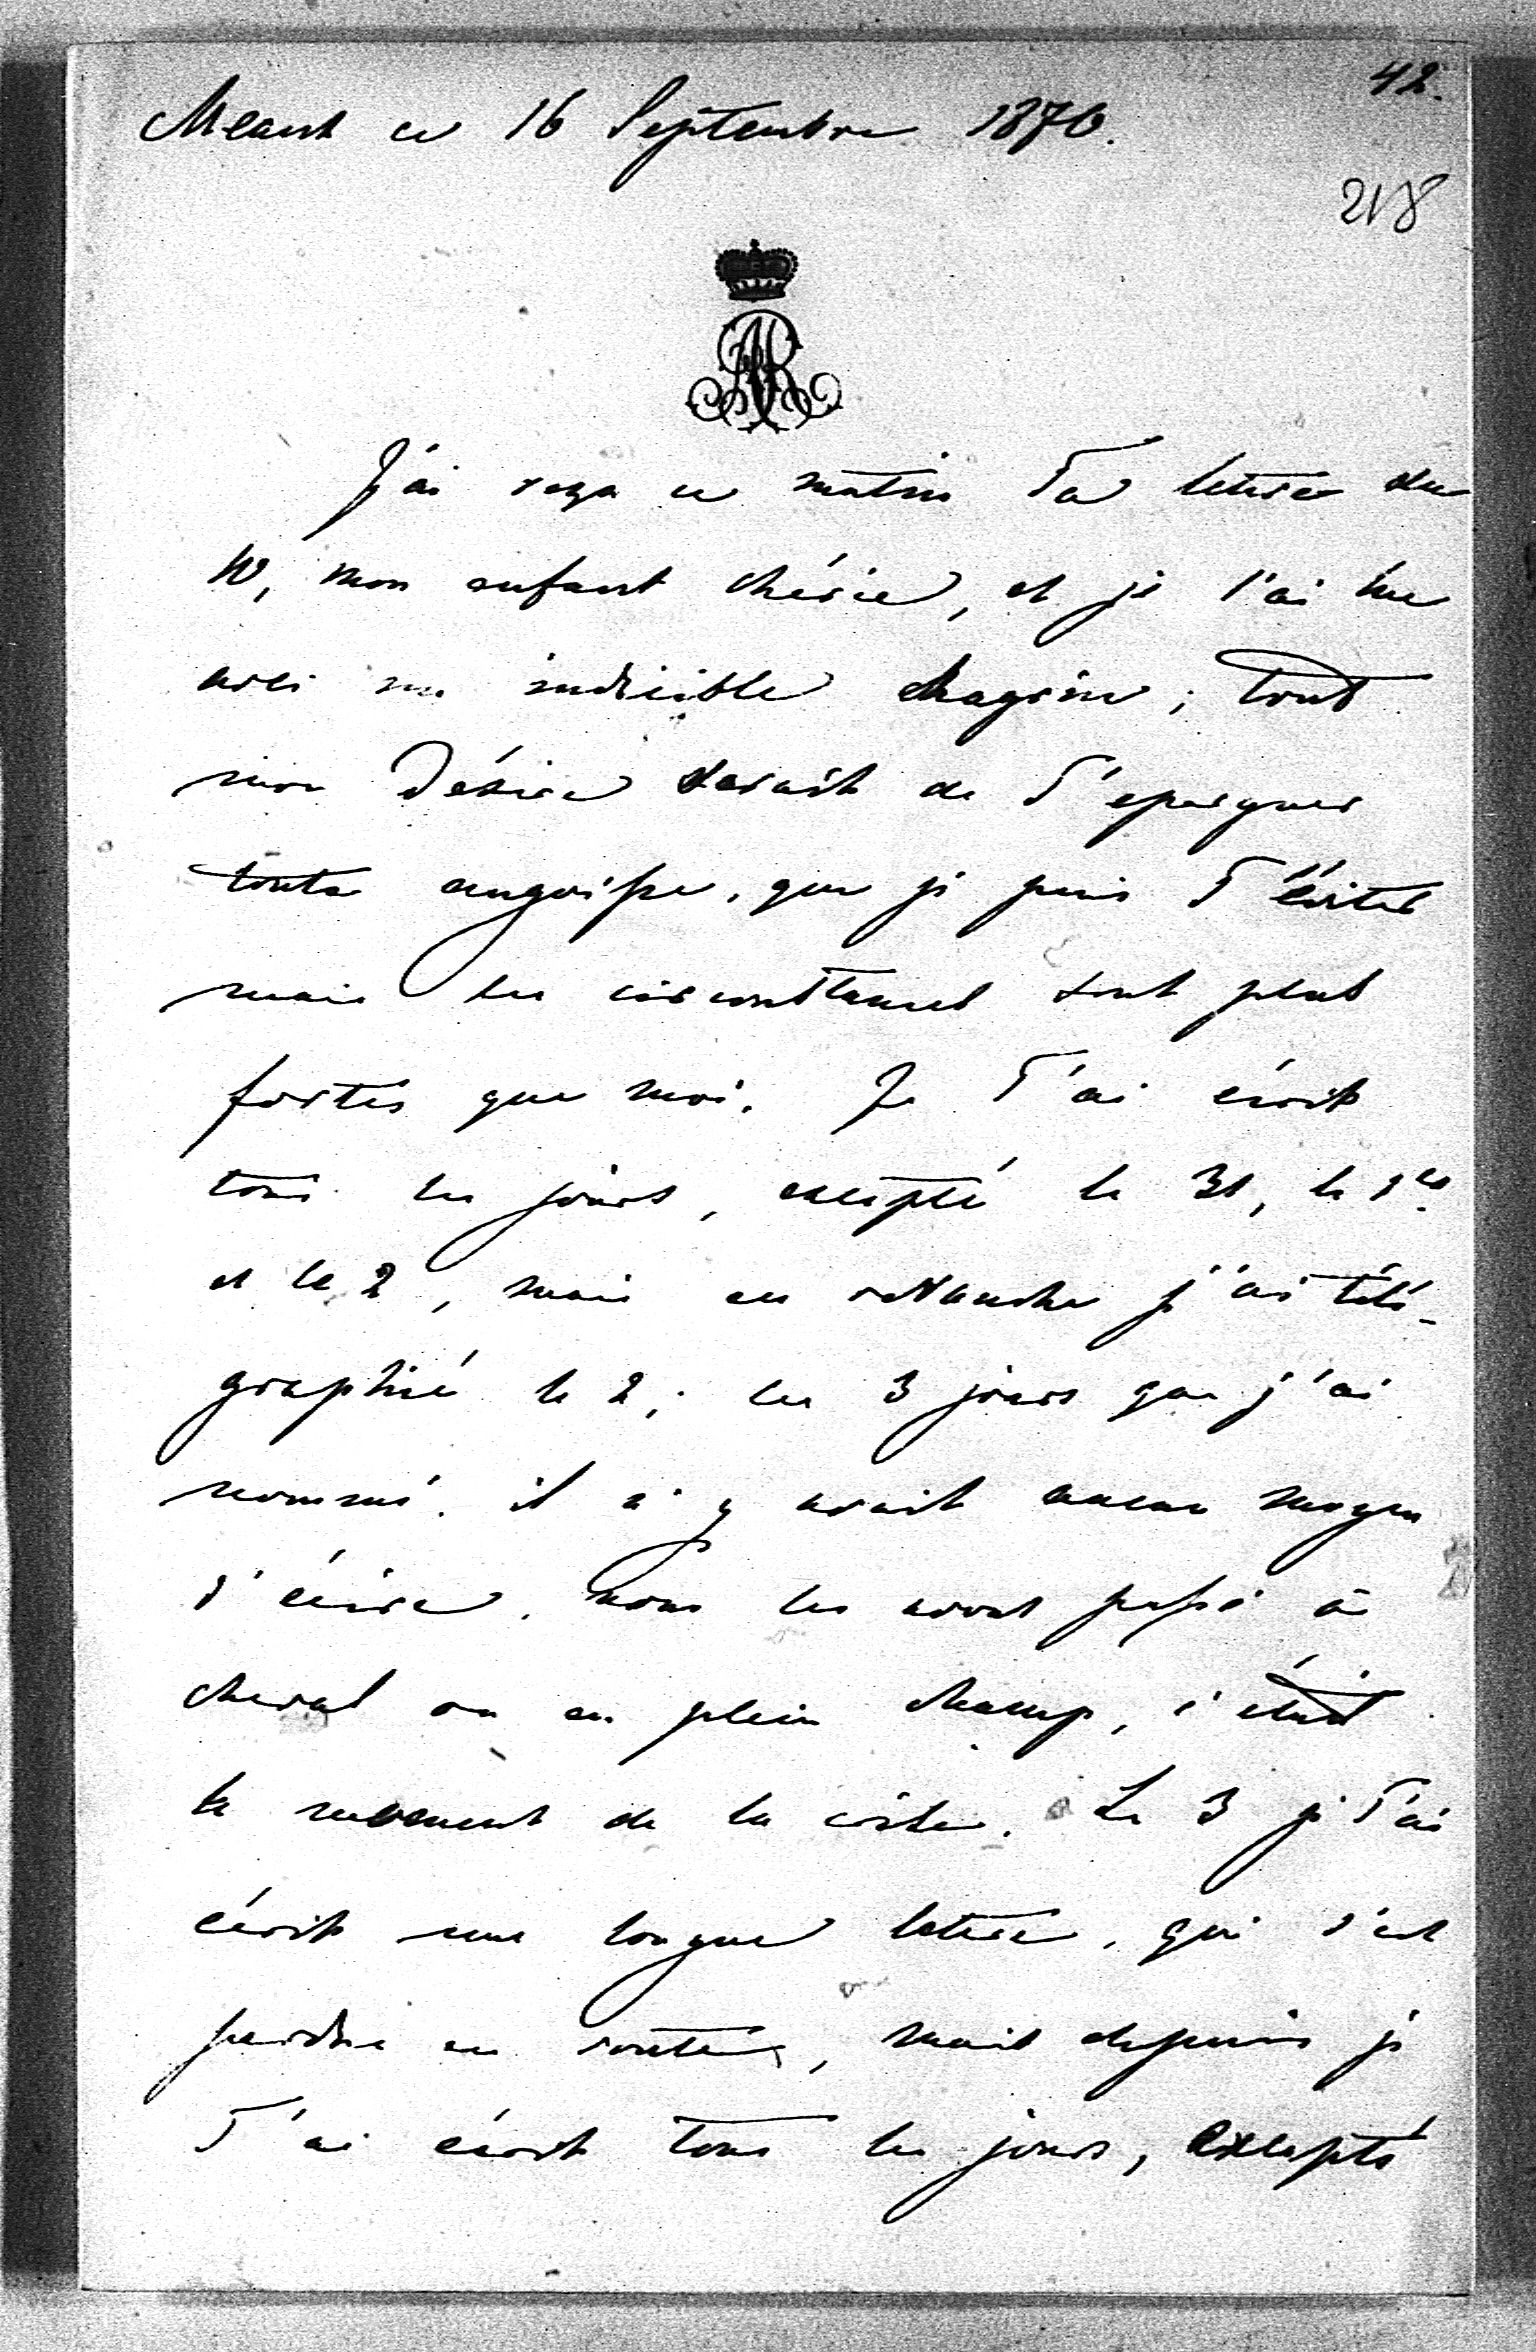 42.
Meaux ce 16 Septembre 1870.
218
AR
J'ai reçu ce matin Ta lettre du
10, mon enfant chérie, et je l'ai lue
avec un indicible chagrin; tout
mon désire serait de T'épargner
toute angoisse, que je puis T'éviter
mais les circonstances sont plus
fortes que moi. Je T'ai écrit
tous les jours, excepté le 31, le 1er
et le 2, mais en revanche j'ai télé-
graphié le 2; les 3 jours que j'ai
nommé. il n'y avait aucun moyen
d'écrire. nous les avons passé à
cheval ou en plein champ, c'était
le moment de la crise. Le 3 je T'ai
écrit une longue lettre, qui s'est
perdue en route, mais depuis je
T'ai écrit tous les jours, excepté